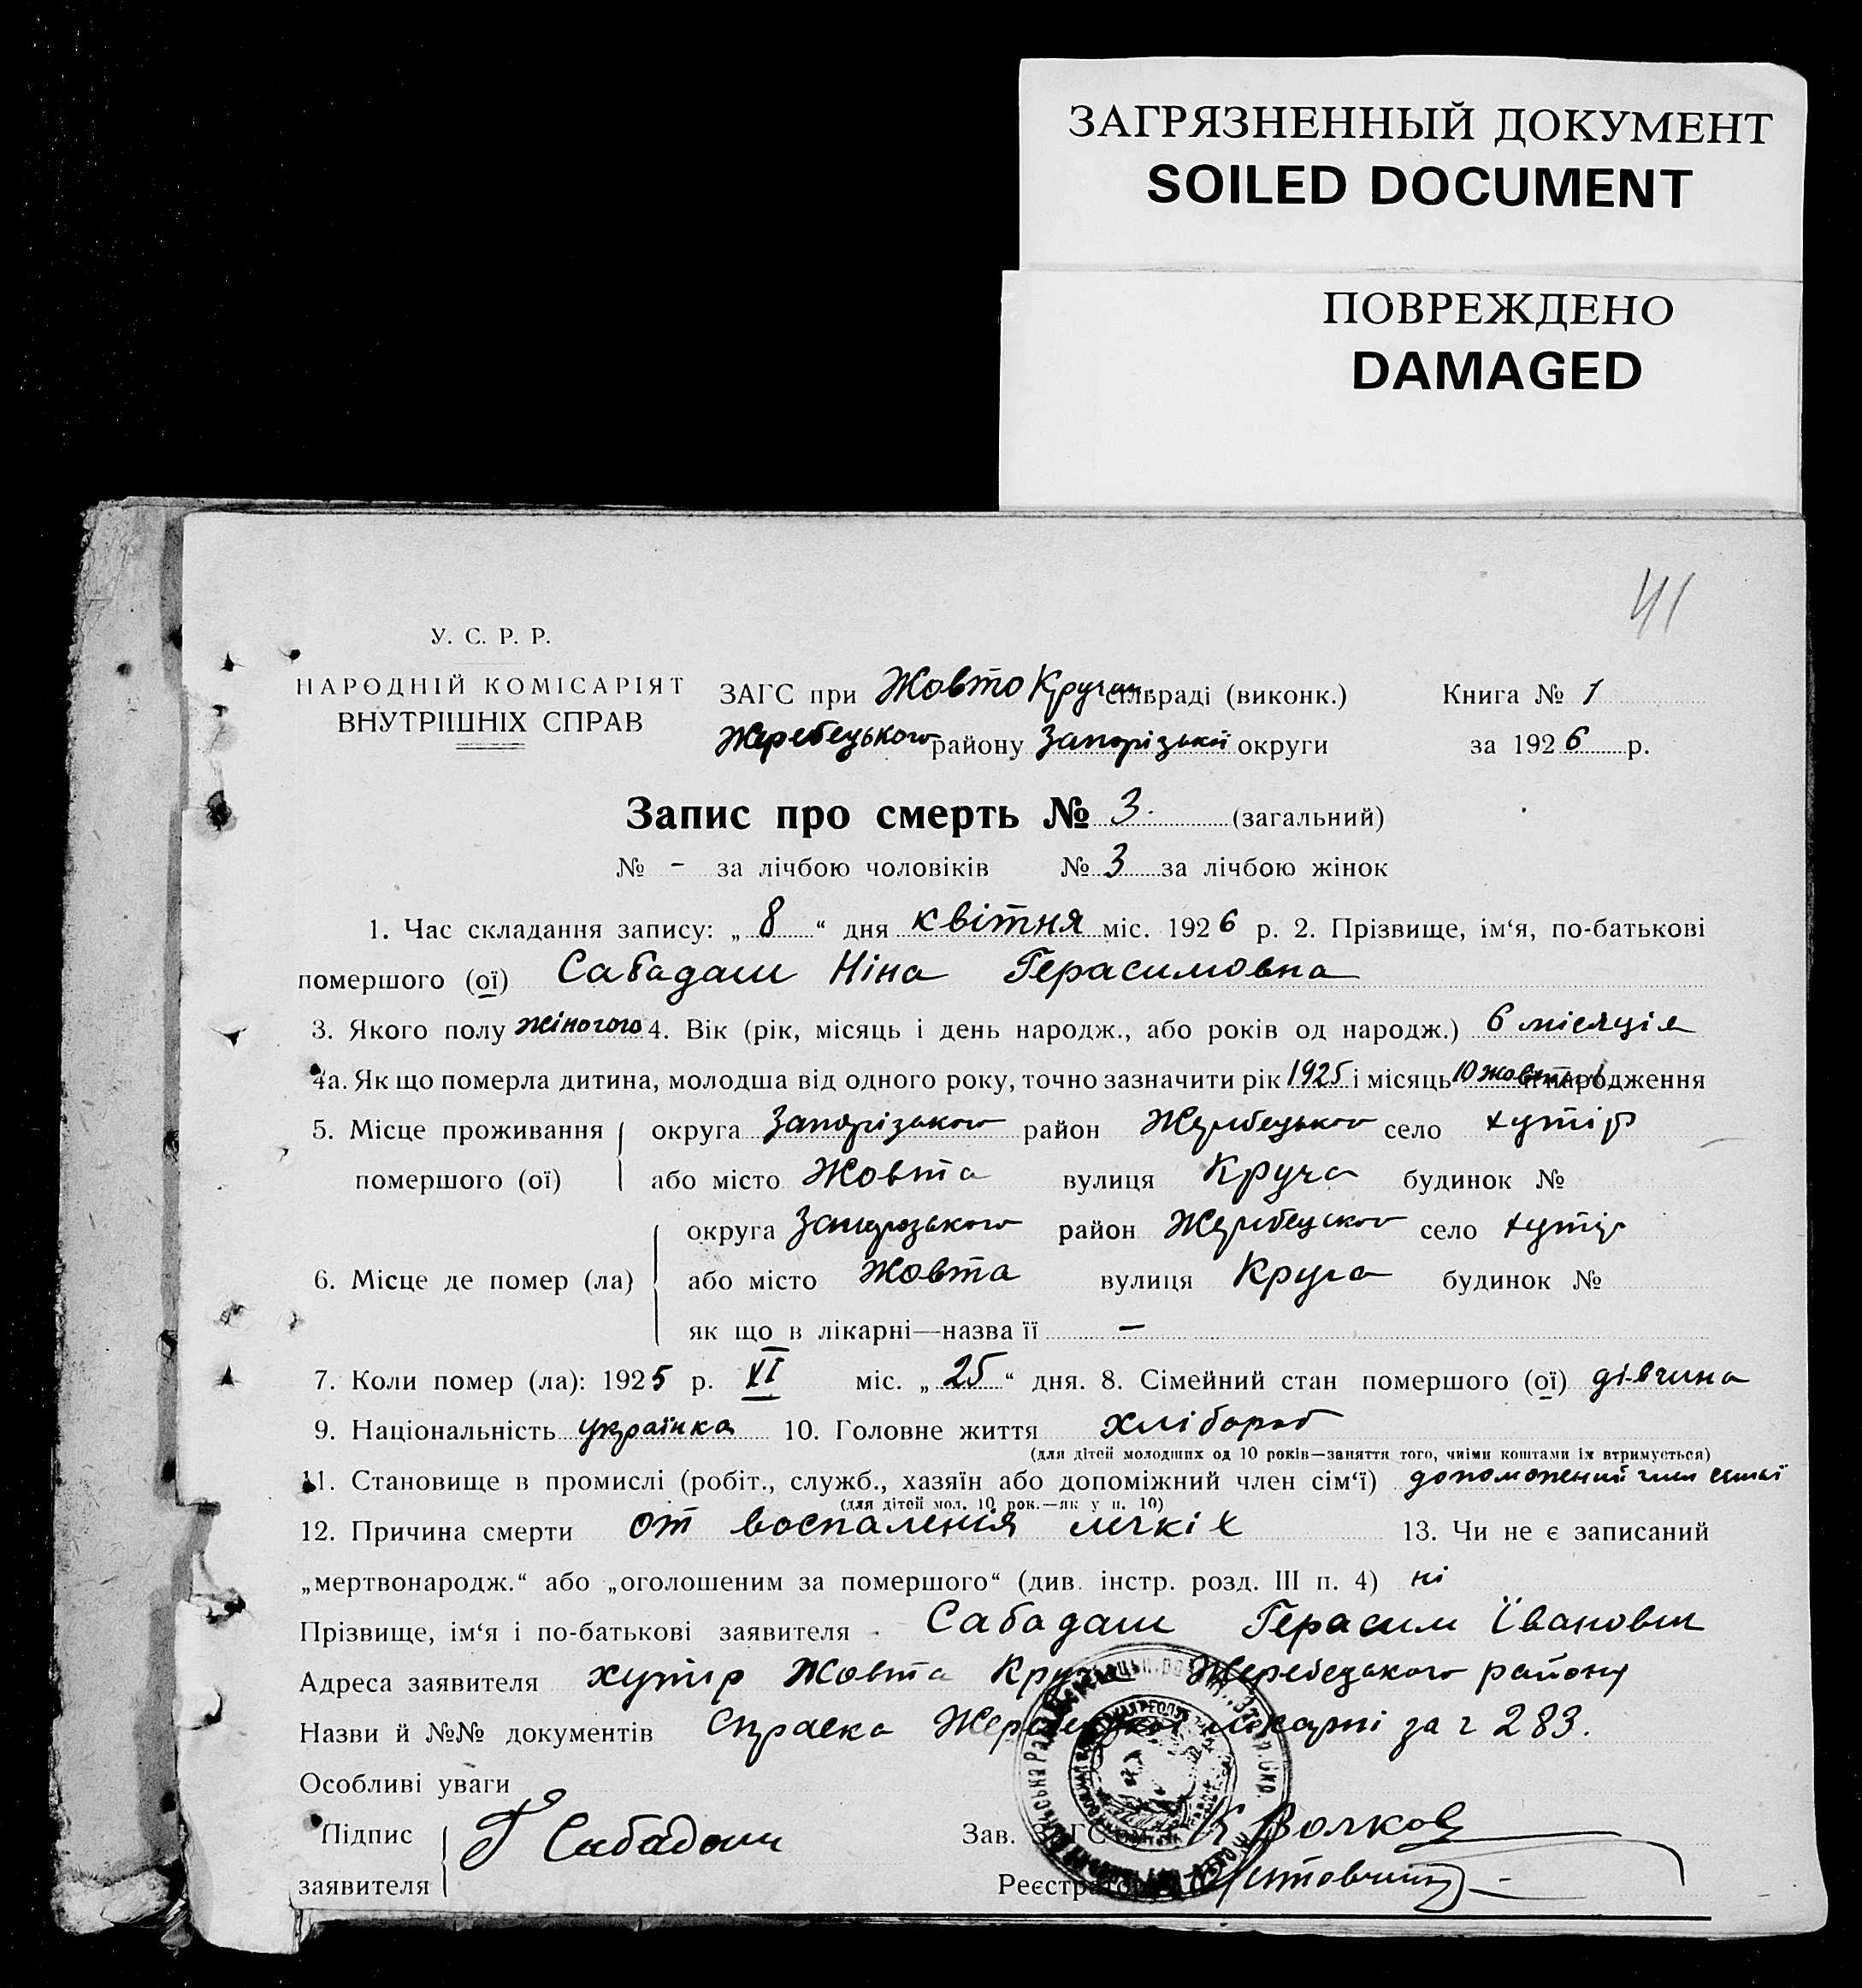 ЗАГРЯЗНЕННЫЙ ДОКУМЕНТ
SOILED DOCUMENT
ПОВРЕЖДЕНО
DAMAGED
41
У. С. Р. Р.
НАРОДНІЙ КОМІСАРІЯТ
ВНУТРІШНІХ СПРАВ
ЗАГС при Жовто Кручан. сільраді (виконк.) Книга № 1
Жеребецького району Запорізької округи за 1926 р.
Запис про смерть № 3. (загальний)
№ - за лічбою чоловіків № 3 за лічбою жінок
1. Час складання запису: „ 8 “ дня квітня міс. 1926 р. 2. Прізвище, ім‘я, по-батькові
помершого (ої) Сабадаш Ніна Герасимовна
3. Якого полу жіночого 4. Вік (рік, місяць і день народж., або років од народж.) 6 місяція
4а. Як що померла дитина, молодша від одного року, точно зазначити рік 1925 і місяць 10 жовтня народження
5. Місце проживання округа Запорізького район Жеребецького село хутір
помершого (ої) або місто Жовта вулиця Круча будинок №
округа Запорозького район Жеребецького село хутір
6. Місце де помер (ла) або місто Жовта вулиця Круча будинок №
як що в лікарні—назва її —
7. Коли помер (ла): 1925 р. XI міс. „ 25 “ дня. 8. Сімейний стан помершого (ої) дівчина
9. Національність українка 10. Головне життя хлібороб
(для дітей молодших од 10 років—заняття того, чиїми коштами їх втримується)
11. Становище в промислі (робіт., служб., хазяїн або допоміжний член сім‘ї) допоможений член семьї
(для дітей мол. 10 рок.—як у п. 10)
12. Причина смерти от воспаленія легкіх 13. Чи не є записаний
„мертвонародж.“ або „оголошеним за помершого“ (див. інстр. розд. III п. 4) ні
Прізвище, ім‘я і по-батькові заявителя Сабадаш Герасим Їванович
Адреса заявителя хутір Жовта Круча Жеребецького району
Назви й №№ документів Справка Жеребецької лікарні за г 283.
Особливі уваги
Підпис Г Сабадаш Зав. ЗАГСом К Волков
заявителя Реєстратор